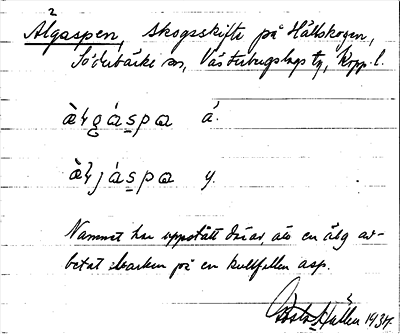 2
Älgaspen, skogsskifte på Hållskogen,
Söderbärke sn, Västerbergslags tg, Kopp. l.
àlgáspa á.
àljáspa y.
Namnet har uppstått därav, att en älg av-
betat barken på en kullfallen asp.
Gösta Hallén 1934.